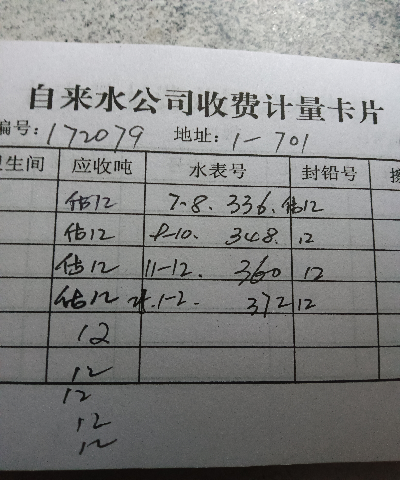 自来水公司收费计量卡片
编号: 172079 地址: 1-701
卫生间 应收吨 水表号 封铅号
估12 7-8. 336. 估12
估12 9-10. 348. 12
估12 11-12. 360 12
估12 1-2. 372 12
12
12
12
12
12